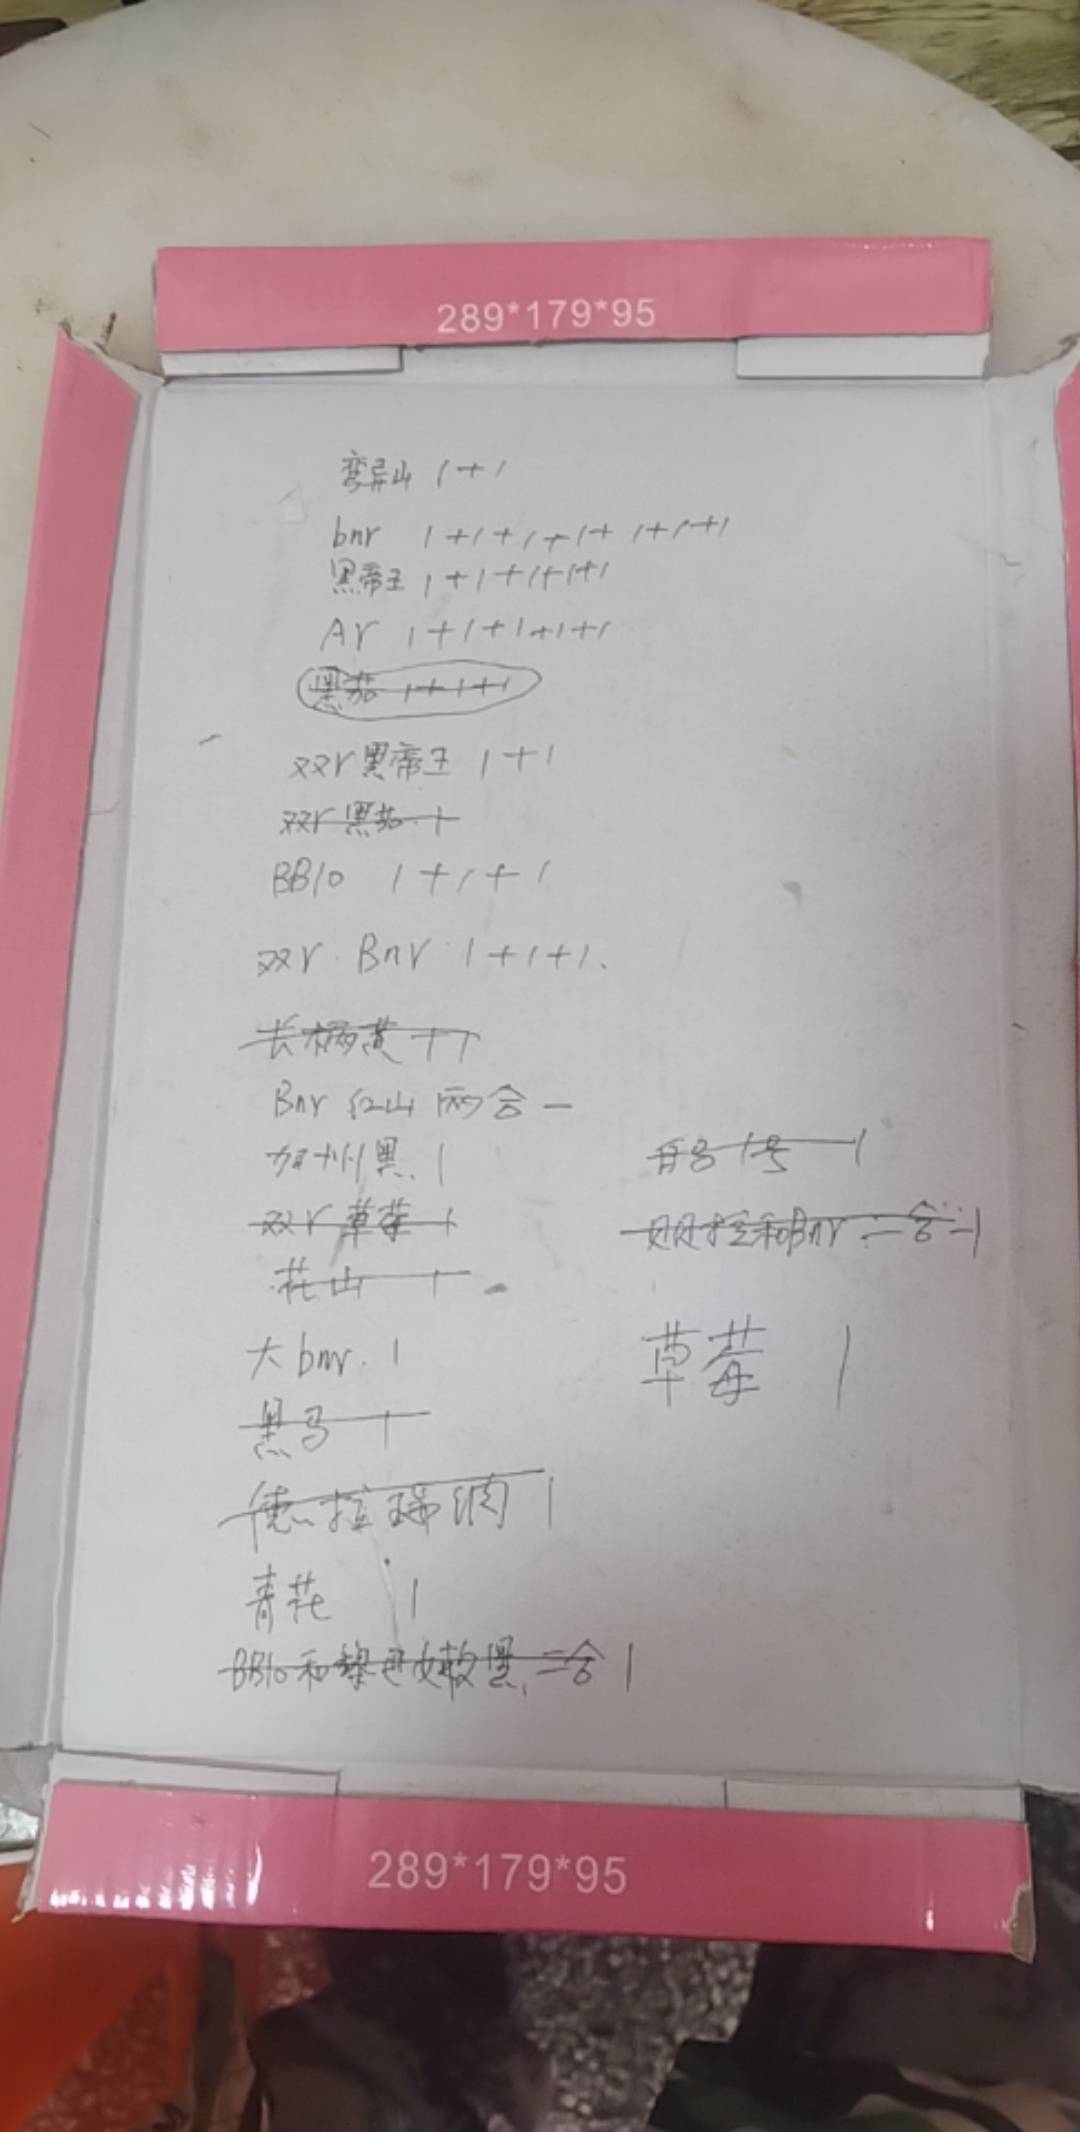 289*179*95
弯异山 1+1
bnr 1+1+1+1+1+1+1
黑帝王 1+1+1+1+1
Ar 1+1+1+1+1
黑茄 1+1+1
双r黑帝王 1+1
双r黑茄 1
BB10 1+1+1
双r Bnr 1+1+1.
长柄黄 1 1
Bnr 红山 两合一
加州黑. 1
1号 1
双r草莓 1
和Bnr 二合一 1
花山 1
大bnr. 1
草莓 1
黑马 1
德拉瑞纳 1
青花 1
BB10和黎巴嫩黑 二合 1
289*179*95